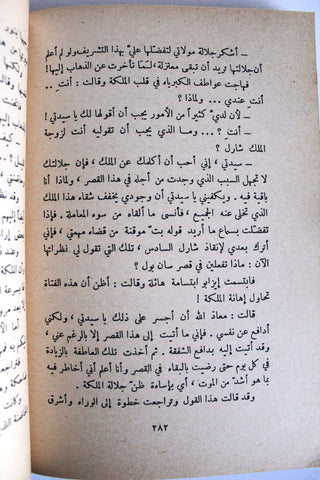 – أشكر جلالة مولاتي لتفضلها عليّ بهذا التشريف ولو لم أعلم
أن جلالتها تريد أن تبقى معتزلة، لما تأخرت عن الذهاب إليها!
فهاجت عواطف الكبرياء في قلب الملكة وقالت : أنتِ .
أنت عندي .. ولماذا ؟
– لأن لدي كثيراً من الأمور يجب أن أقولها لك يا سيدتي !
– أنتِ ؟ ... وما الذي يجب أن تقوليه أنت لزوجة
الملك شارل ؟
– سيدتي ، إني أحب أن أكلمك عن الملك ، فإن جلالتك
لا تجهل السبب الذي وجدت من أجله في هذا القصر ، ولماذا أنا
باقية فيه . ويكفيني يا سيدتي أن وجودي يخفف شقاء هذا الملك
الذي تخلى عنه الجميع ، فأنسى ما ألقاه من سوء المعاملة . فإذا
تفضلت بسماع ما أريد قوله بت موقنة من شخص المقدس ،
أترك بعدي لإنقاذ شارل السادس ، تلك التي تقول لي نظراتها
الآن : ماذا تفعلين في قصر سان بول ؟
فابتسمت إيزابو ابتسامة هائلة وقالت : أظن أن هذه الفتاة
تحاول إهانة الملكة !
قالت : معاذ الله أن أجسر على ذلك يا سيدتي ، ولكني
أدافع عن نفسي . فإني ما أتيت إلى هذا القصر إلا بالرغم عني ،
وما أتيت إليه بدافع الشفقة . ثم أخذت تلك العاطفة بالزيادة
في كل يوم حتى رضيت بالبقاء في القصر وأنا أعلم أني أخاطر فيه
بما هو أشد من الموت ، أي بإساءة ظن جلالة الملكة .
وقد قالت هذا القول وتراجعت خطوة إلى الوراء وأشرق
٢٨٢